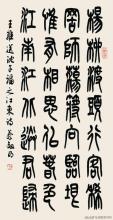 楊柳渡頭行客稀
罟師蕩槳向臨圻
惟有相思似春色
江南江北送君歸
王維送沈子福之江東詩